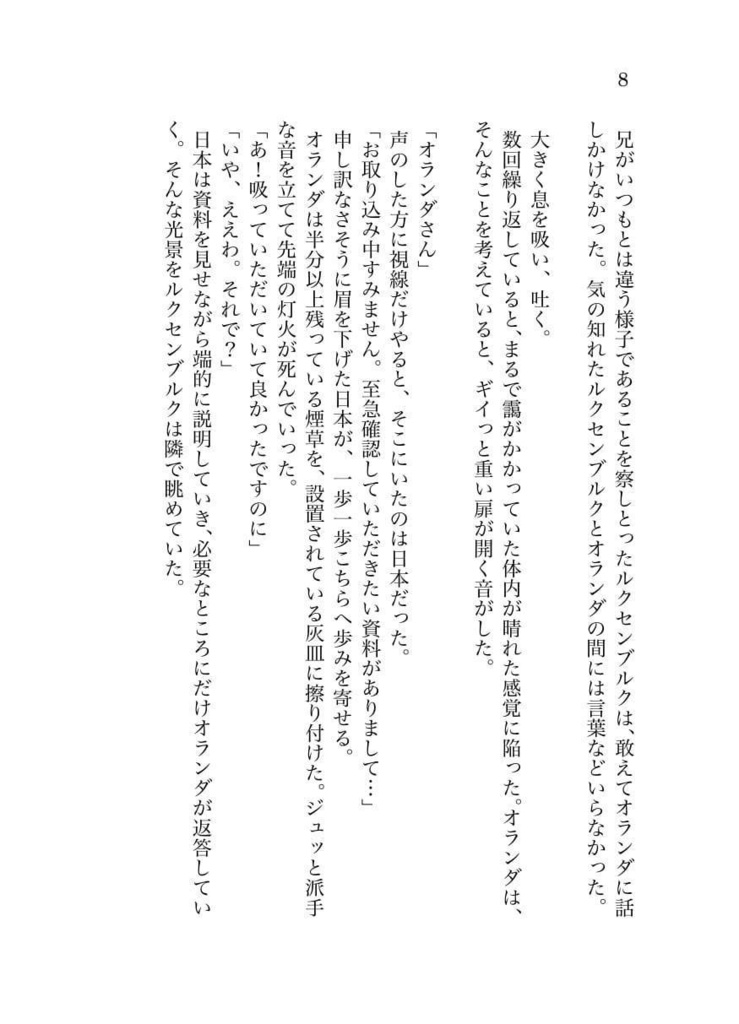 8
兄がいつもとは違う様子であることを察しとったルクセンブルクは、敢えてオランダに話
しかけなかった。気の知れたルクセンブルクとオランダの間には言葉などいらなかった。
大きく息を吸い、吐く。
数回繰り返していると、まるで靄がかかっていた体内が晴れた感覚に陥った。オランダは、
そんなことを考えていると、ギイっと重い扉が開く音がした。
「オランダさん」
声のした方に視線だけやると、そこにいたのは日本だった。
「お取り込み中すみません。至急確認していただきたい資料がありまして…」
申し訳なさそうに眉を下げた日本が、一歩一歩こちらへ歩みを寄せる。
オランダは半分以上残っている煙草を、設置されている灰皿に擦り付けた。ジュッと派手
な音を立てて先端の灯火が死んでいった。
「あ！吸っていただいていて良かったですのに」
「いや、ええわ。それで？」
日本は資料を見せながら端的に説明していき、必要なところにだけオランダが返答してい
く。そんな光景をルクセンブルクは隣で眺めていた。